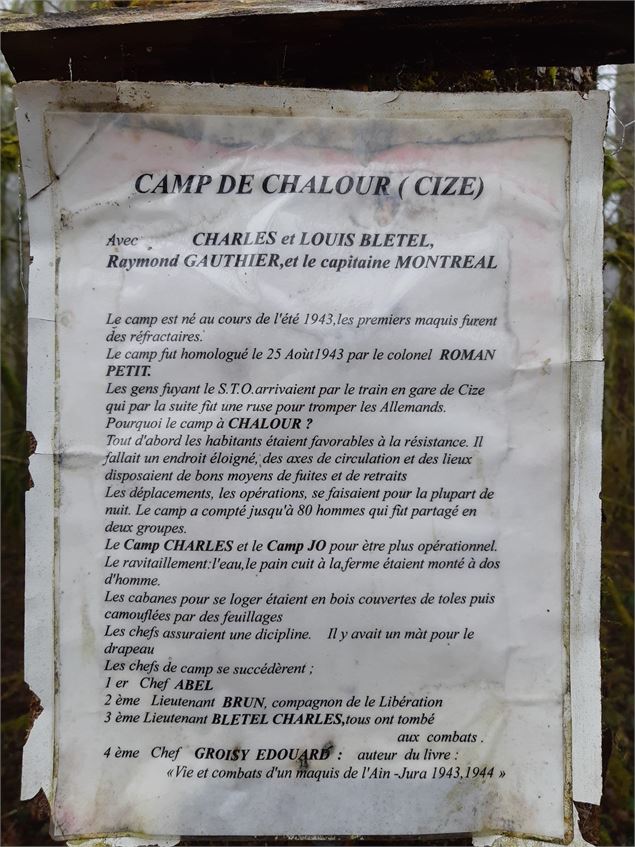 CAMP DE CHALOUR ( CIZE)
Avec CHARLES et LOUIS BLETEL,
Raymond GAUTHIER,et le capitaine MONTREAL
Le camp est né au cours de l'été 1943,les premiers maquis furent
des réfractaires.
Le camp fut homologué le 25 Août1943 par le colonel ROMAN
PETIT.
Les gens fuyant le S.T.O.arrivaient par le train en gare de Cize
qui par la suite fût une ruse pour tromper les Allemands.
Pourquoi le camp à CHALOUR ?
Tout d'abord les habitants étaient favorables à la résistance. Il
fallait un endroit éloigné, des axes de circulation et des lieux
disposaient de bons moyens de fuites et de retraits
Les déplacements, les opérations, se faisaient pour la plupart de
nuit. Le camp a compté jusqu'à 80 hommes qui fût partagé en
deux groupes.
Le Camp CHARLES et le Camp JO pour ètre plus opérationnel.
Le ravitaillement:l'eau,le pain cuit à la,ferme étaient monté à dos
d'homme.
Les cabanes pour se loger étaient en bois couvertes de toles puis
camouflées par des feuillages
Les chefs assuraient une dicipline. Il y avait un màt pour le
drapeau
Les chefs de camp se succédèrent ;
1 er Chef ABEL
2 ème Lieutenant BRUN, compagnon de le Libération
3 ème Lieutenant BLETEL CHARLES,tous ont tombé
aux combats .
4 ème Chef GROISY EDOUARD : auteur du livre :
«Vie et combats d'un maquis de l'Ain -Jura 1943,1944 »